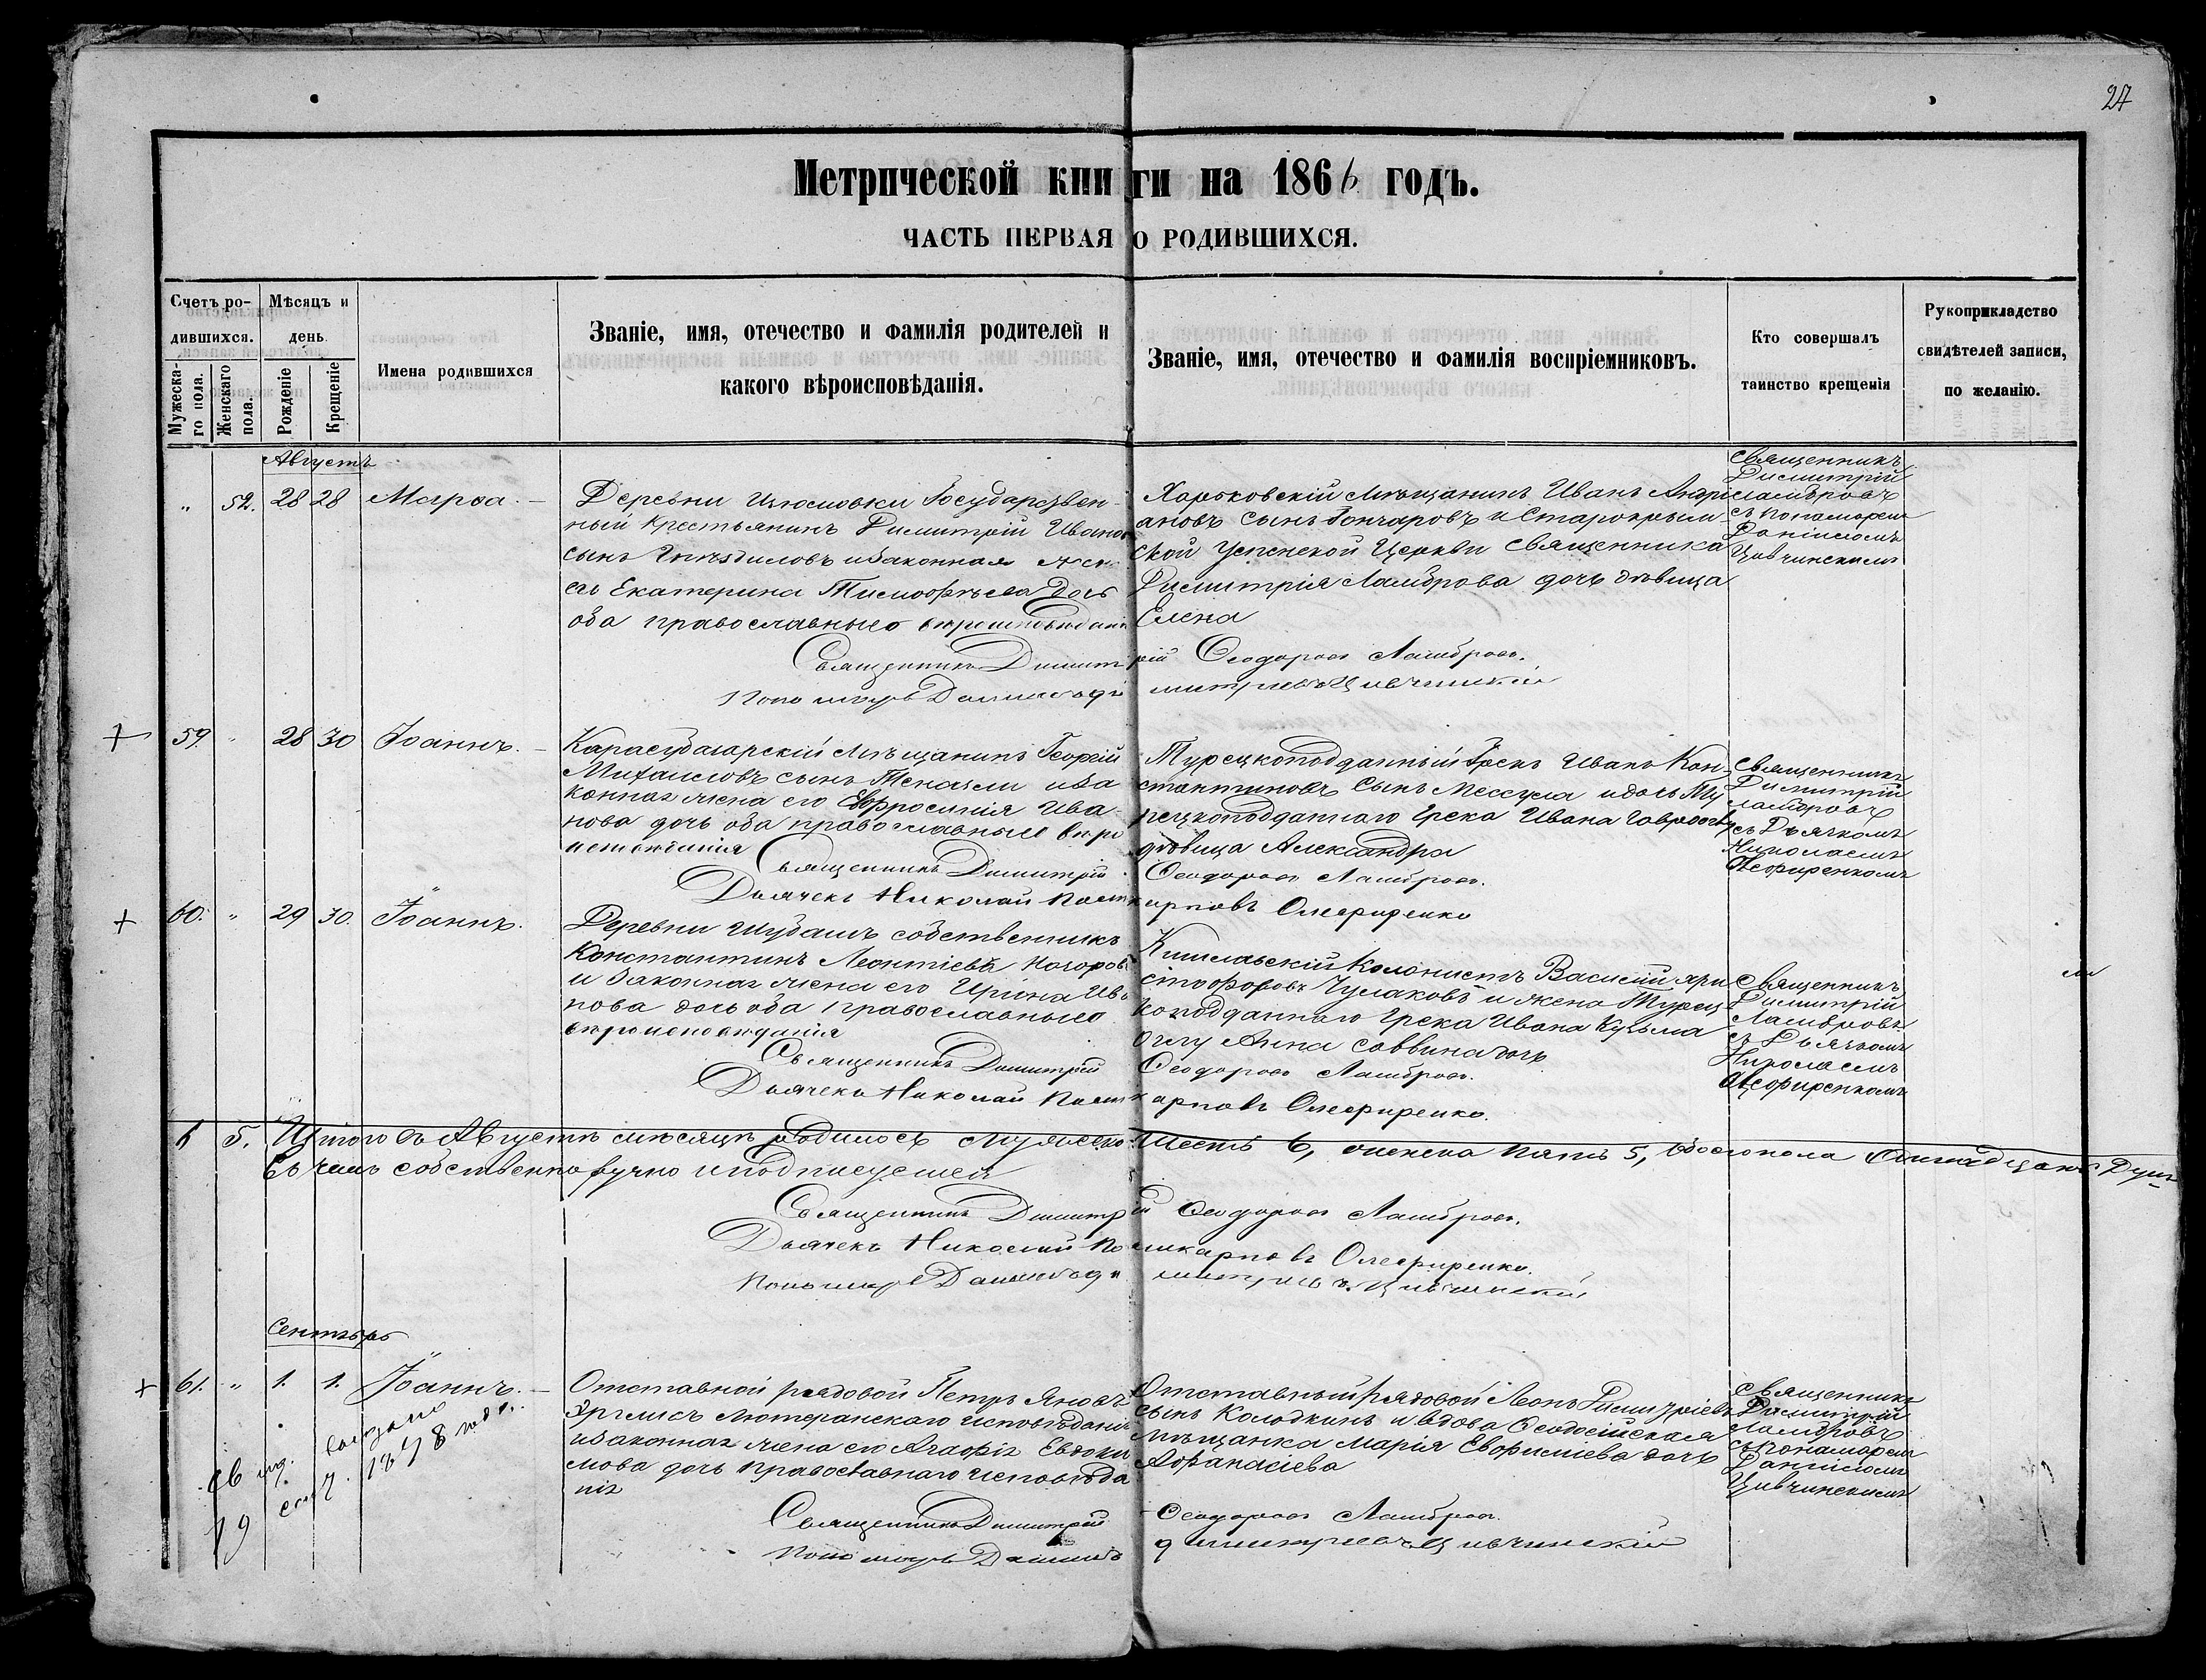 27
Метрической книги на 1866 годъ.
ЧАСТЬ ПЕРВАЯ О РОДИВШИХСЯ.
Счетъ родившихся.
Мужескаго пола.
Женскаго пола.
Мѣсяцъ и день.
Рожденіе
Крещеніе
Имена родившихся
Званіе, имя, отечество и фамилія родителей и
какого вѣроисповѣданія.
Званіе, имя, отечество и фамилія воспріемниковъ.
Кто совершалъ
таинство крещенія
Рукоприкладство
свидѣтелей записи,
по желанію.
Августъ
" 52. 28 28 Марѳа.
Деревни Государствен-
ный крестьянинъ Димитрій Иванов
сынъ Гнѣздиловъ и законная жен
Екатерина Тимофѣева дочь
оба православнаго вѣроисповѣданія
Харьковскій мѣщанинъ Иванъ Андрі
ановъ сынъ Гончаровъ и Старокрым-
ской Успенской Церкви священника
Димитрія Ламброва дочь дѣвица
Елена
Священникъ
Димитрій
Ламбровъ
съ пономаремъ
Даніиломъ
Цивчинскимъ
Священникъ Димитрій Ѳеодоровъ Ламбровъ.
Пономарь Даніилъ Димитріевъ Цивчинскій
59. " 28 30 Іоаннъ.
Карасубазарскій мѣщанинъ Георгій
Михаиловъ сынъ и за
конная жена его Евфросинія Ива
нова дочь оба православнаго вѣро
исповѣданія
Турецкоподданный Грекъ Иванъ Кон-
стантиновъ сынъ и дочь Ту
рецкоподданнаго Грека Ивана
дѣвица Александра
Священникъ
Димитрій
Ламбровъ
съ Дьячкомъ
Николаемъ
Олефиренкомъ
Священникъ Димитрій Ѳеодоровъ Ламбровъ.
Дьячекъ Николай Поликарповъ Олефиренко
60. " 29 30. Іоаннъ.
Деревни Шубашъ собственникъ
Константинъ Леонтіевъ
и законная жена его Ирина Ива
нова дочь оба православнаго
вѣроисповѣданія
Кишлавскій Колонистъ Василій Хри
стофоровъ Чулаковъ и жена Турец
коподданнаго Грека Ивана Кузьма
оглу Анна Саввина дочь
Священникъ
Димитрій
Ламбровъ
съ Дьячкомъ
Николаемъ
Олефиренкомъ
Священникъ Димитрій Ѳеодоровъ Ламбровъ.
Дьячекъ Николай Поликарповъ Олефиренко.
6 5. Итого въ Августѣ мѣсяцѣ родилось мужеска шесть 6, женска пять 5, обоего пола одинадцать душъ
въ чемъ собственноручно и подписуемся
Священникъ Димитрій Ѳеодоровъ Ламбровъ.
Дьячекъ Николай Поликарповъ Олефиренко.
Пономарь Даніилъ Димитріевъ Цивчинскій
Сентябрь
61. " 1. 1. Іоаннъ.
Отставной рядовой Петръ Яновъ
лютеранскаго исповѣданія
и законная жена его Агафія Евдоки
мова дочь православнаго исповѣда
нія
Отставный рядовой Леонъ Димитріевъ
сынъ Колодкинъ и вдова Ѳеодосійская
мѣщанка Марія Евфиміева дочь
Афанасіева
Священникъ
Димитрій
Ламбровъ
съ пономаремъ
Даніиломъ
Цивчинскимъ
Св. выдано
19 сент. 1878 года.
Священникъ Димитрій Ѳеодоровъ Ламбровъ.
Пономарь Даніилъ Димитріевъ Цивчинскій